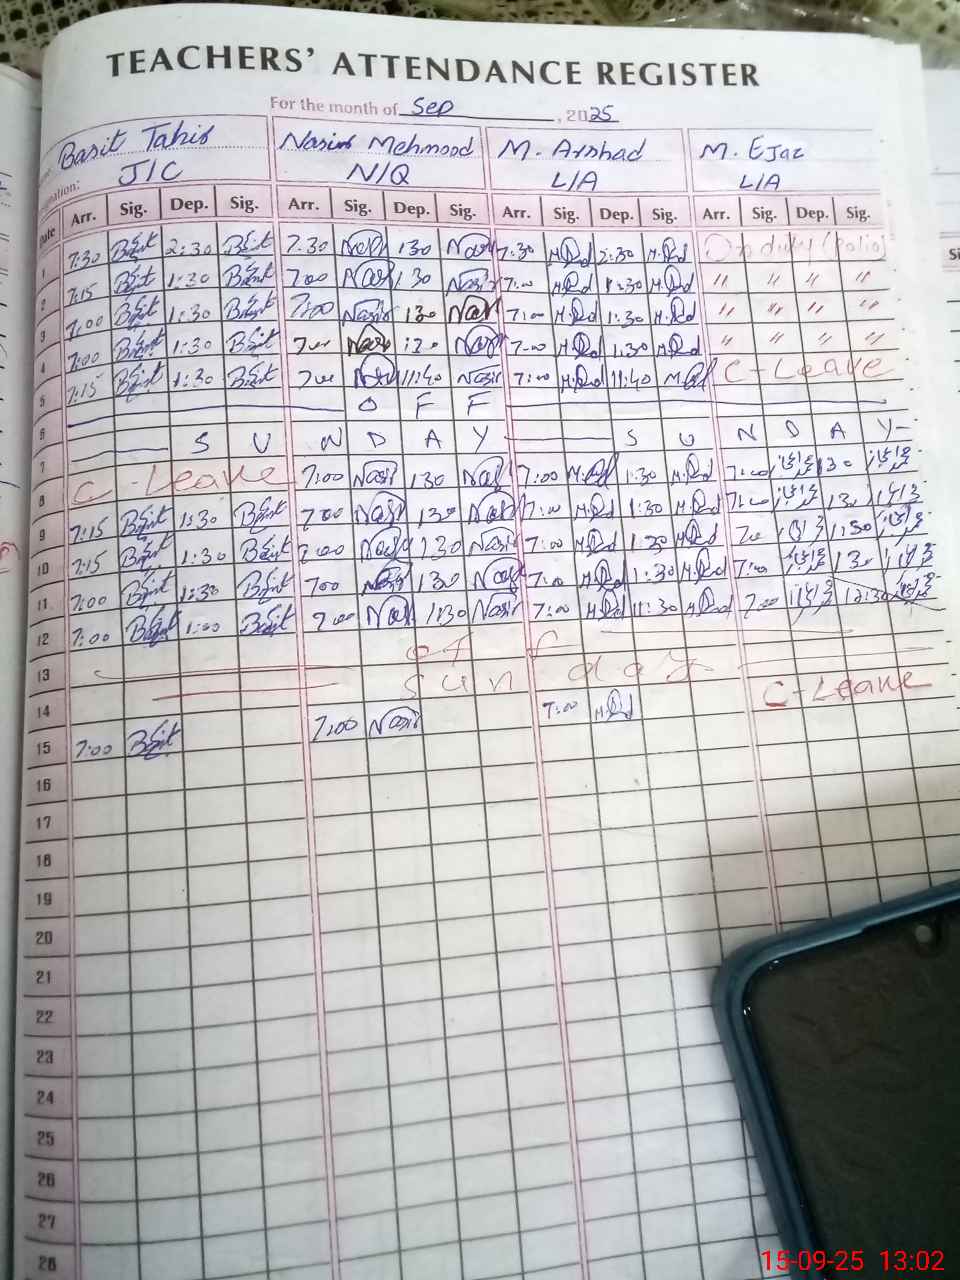 TEACHERS' ATTENDANCE REGISTER
For the month of Sep, 2025
Basit Tahir Nasir Mehmood M. Arshad M. Ejaz
J/C N/Q L/A L/A
Date Arr. Sig. Dep. Sig. Arr. Sig. Dep. Sig. Arr. Sig. Dep. Sig. Arr. Sig. Dep. Sig.
1 7:30 Basit 2:30 Basit 7:30 Nasir 1:30 Nasir 7:30 2:30 On duty (Polio)
2 7:15 Basit 1:30 Basit 7:00 Nasir 1:30 Nasir 7:00 1:30 " " " "
3 7:00 Basit 1:30 Basit 7:00 Nasir 1:30 Nasir 7:00 1:30 " " " "
4 7:00 Basit 1:30 Basit 7:00 Nasir 1:30 Nasir 7:00 1:30 " " " "
5 7:15 Basit 1:30 Basit 7:00 Nasir 11:40 Nasir 7:00 11:40 C-Leave
6 O F F
7 S U N D A Y S U N D A Y
8 C-Leave 7:00 Nasir 1:30 Nasir 7:00 1:30 7:00 1:30
9 7:15 Basit 1:30 Basit 7:00 Nasir 1:30 Nasir 7:00 1:30 7:00 1:30
10 7:15 Basit 1:30 Basit 7:00 Nasir 1:30 Nasir 7:00 1:30 7:00 1:30
11 7:00 Basit 1:30 Basit 7:00 Nasir 1:30 Nasir 7:00 1:30 7:00 1:30
12 7:00 Basit 1:00 Basit 7:00 Nasir 1:30 Nasir 7:00 11:30 7:00 12:30
13 of f
14 sunday
15 7:00 Basit 7:00 Nasir 7:00 C-Leave
16
17
18
19
20
21
22
23
24
25
26
27
28
15-09-25 13:02